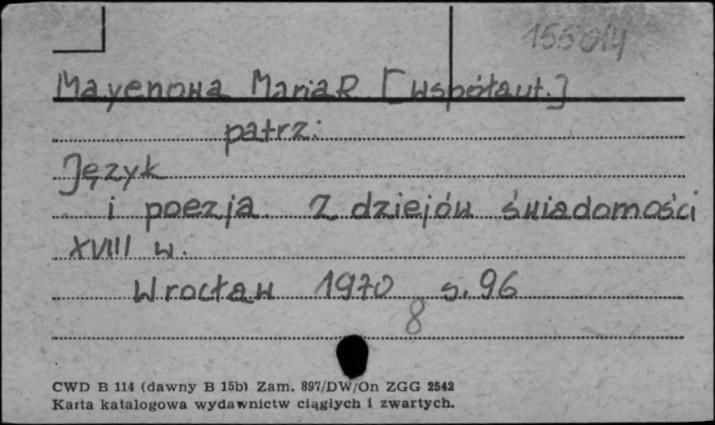 155014
Mayenowa Maria R [współaut.]
patrz:
Język
i poezja Z dziejów świadomości
XVIII w.
Wrocław 1970 s. 96
8
CWD B 114 (dawny B 15b) Zam. 897/DW/On ZGG 2542
Karta katalogowa wydawnictw ciągłych i zwartych.